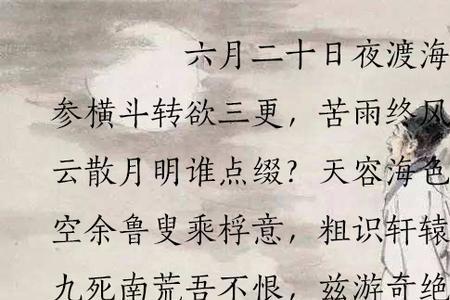 六月二十日夜渡海
参横斗转欲三更，苦雨终风
云散月明谁点缀？天容海色
空余鲁叟乘桴意，粗识轩辕
九死南荒吾不恨，兹游奇绝